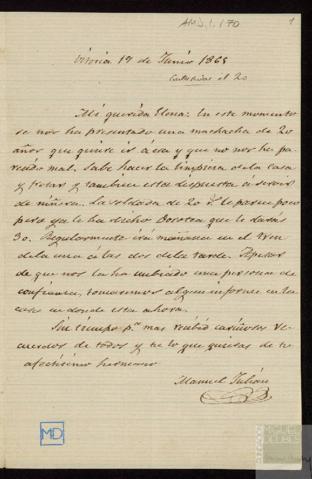 AMD, I, 170
1
Vitoria 17 de Junio 1865
Contestada el 20
Mi querida Elena: En este momento
se nos ha presentado una muchacha de 20
años que quiere ir a esa y que no nos ha pa-
recido mal. Sabe hacer la limpieza de la casa
y tambien esta dispuesta a servir
de niñera. La soldada de 20 r.s le parece poco
pero ya le ha dicho Dorotea que le darás
30. Regularmente irá mañana en el tren
de la una a las dos de la tarde. Apesar
de que nos la ha enviado una persona de
confianza, tomaremos algun informe en la
casa en donde esta ahora.
Sin tiempo p.a mas recibid cariñosos re-
cuerdos de todos y tu lo que quieras de tu
afectisimo hermano
Manuel Julián
MD
MIGUEL DELIBES